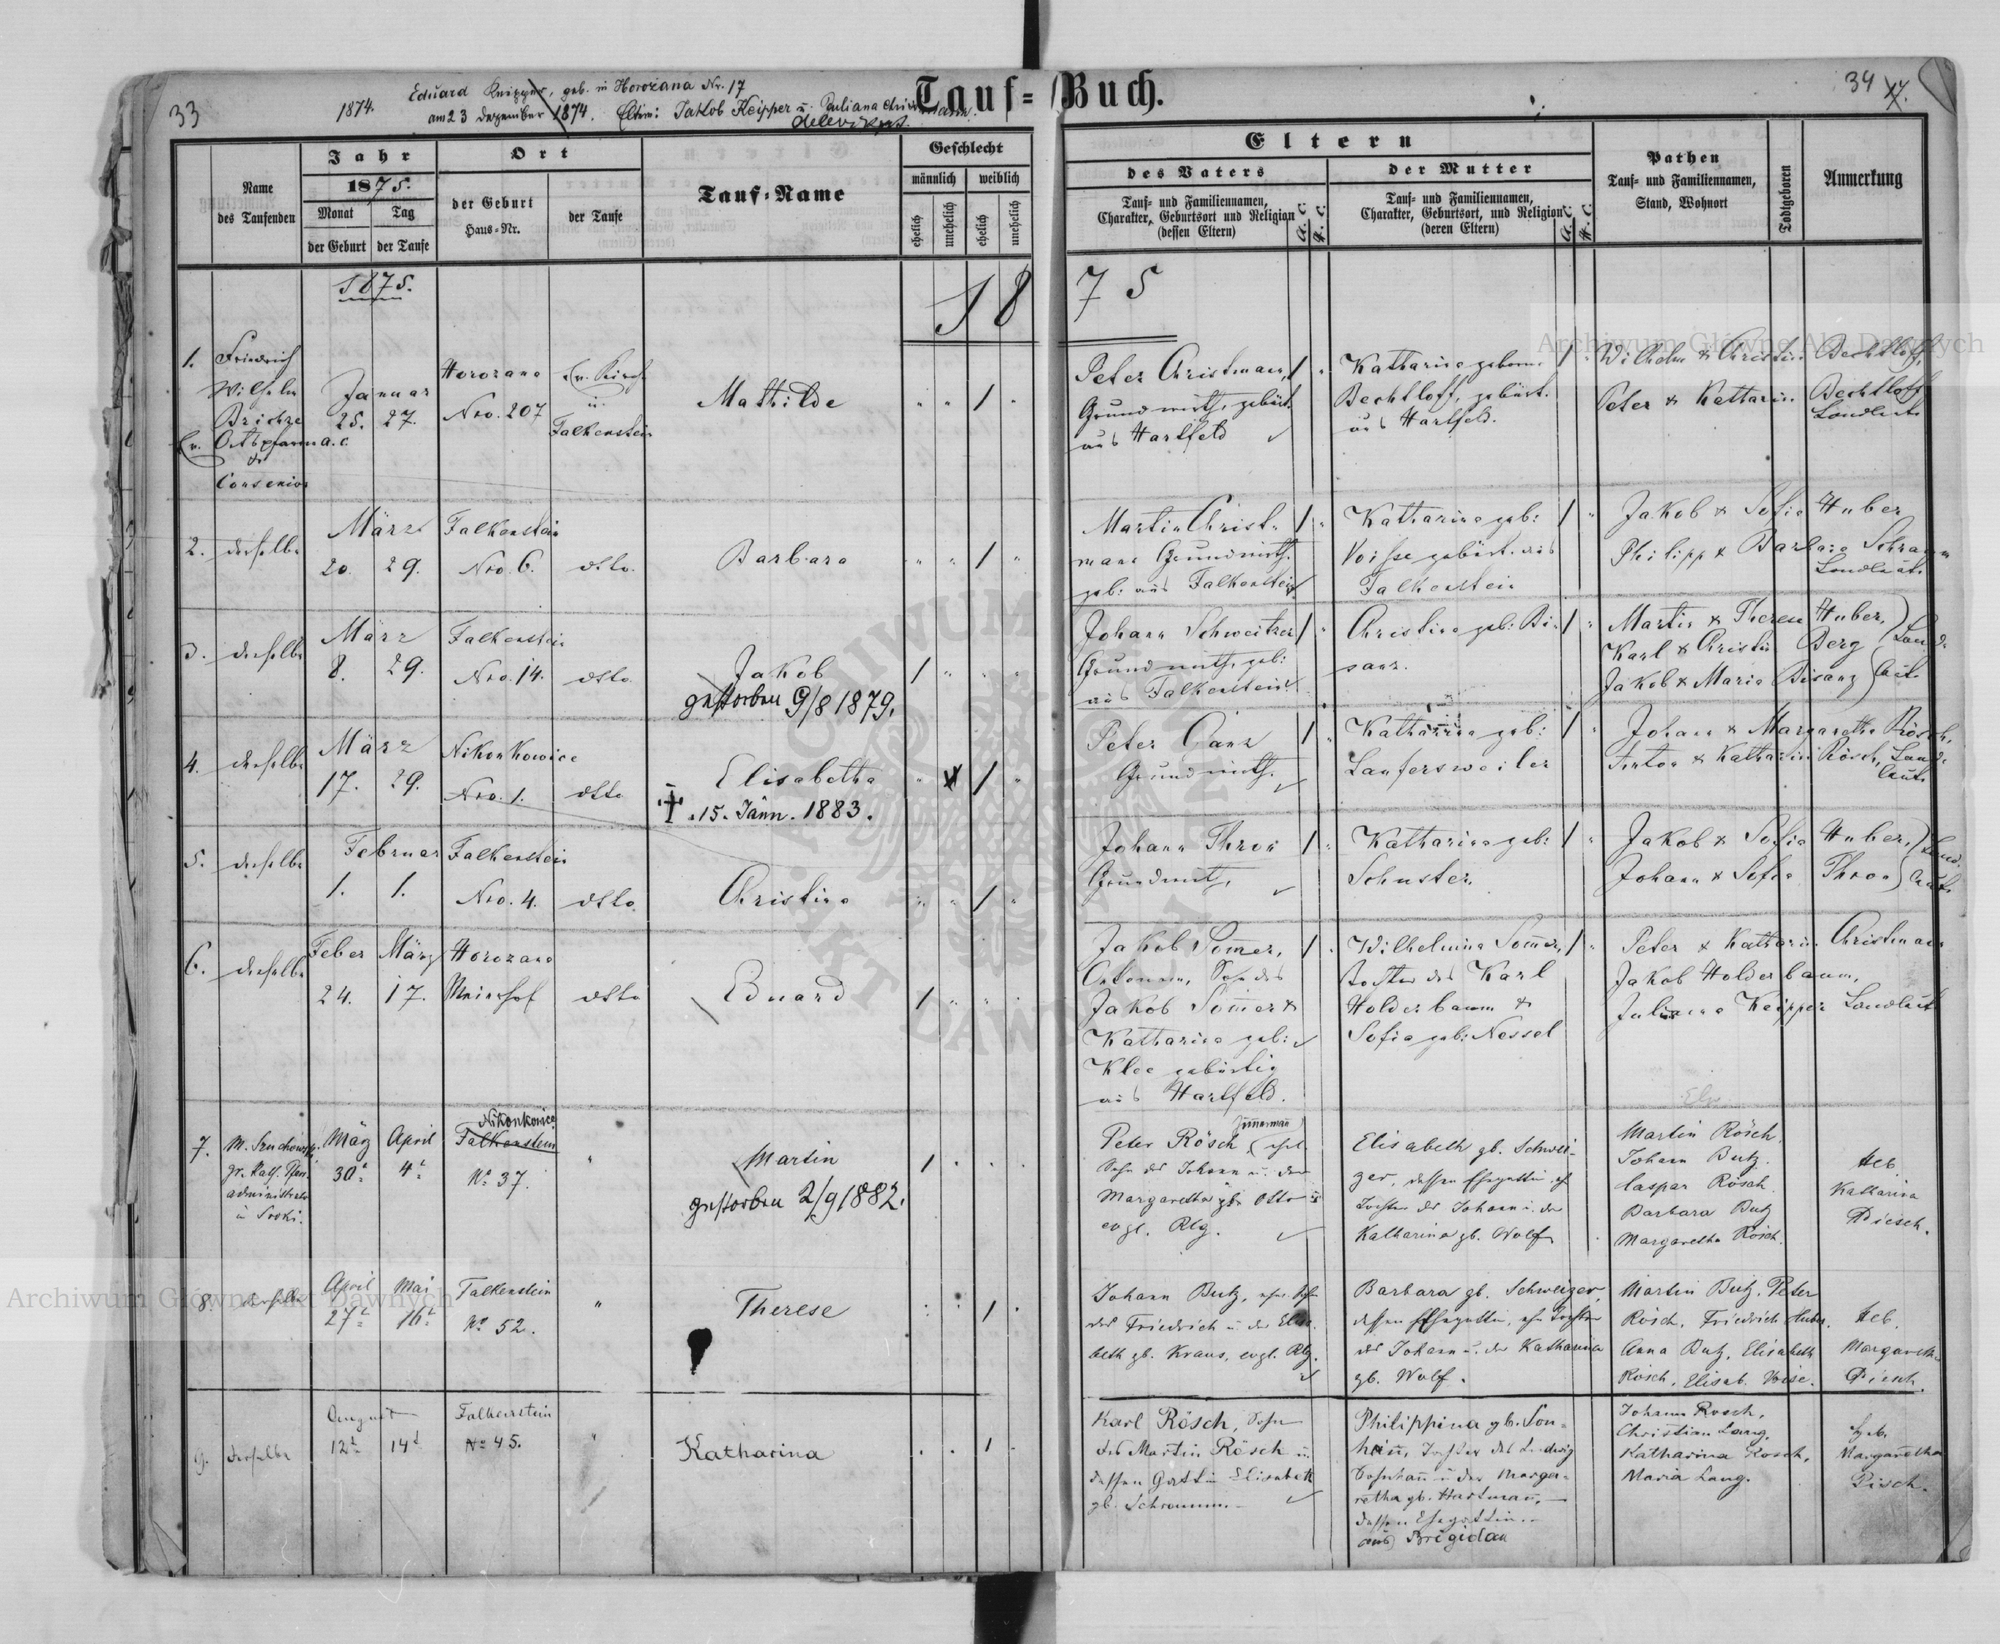 33
1874.
Eduard Keipper, geb. in Horożana Nr. 17
am 23 Dezember 1874. Eltern: Jakob Keipper u. Juliana
Tauf-Buch.
34
Name
des Taufenden
Jahr
1875.
Monat
Tag
der Geburt
der Taufe
Ort
der Geburt
Haus-Nr.
der Taufe
Tauf-Name
Geschlecht
männlich
weiblich
ehelich
unehelich
ehelich
unehelich
Eltern
des Vaters
Tauf- und Familiennamen,
Charakter, Geburtsort und Religion
(dessen Eltern)
A. C.
H. C.
der Mutter
Tauf- und Familiennamen,
Charakter, Geburtsort, und Religion
(deren Eltern)
A. C.
H. C.
Pathen
Tauf- und Familiennamen,
Stand, Wohnort
Todtgeboren
Anmerkung
1875.
18
75
1.
Friedrich
Wilhelm
Ev. Ortspfarrer a. c.
Consenior
Januar
25. 27.
Horozana
Nro. 207
Ev. Kirche
in
Falkenstein
Mathilde
Peter Christmann,
Grundwirth, gebürt.
aus Hartfeld
Katharina geborne
Bechtloff, gebürt.
aus Hartfeld.
Wilhelm & Christine Bechtloff,
Peter & Katharina Bechtloff
Landleute
2.
derselbe
März
20. 29.
Falkenstein
Nro. 6.
dtto.
Barbara
Martin Christ-
mann Grundwirth.
geb: aus Falkenstein
Katharina geb:
Voisse gebürt. aus
Falkenstein
Jakob & Sofia Huber
Philipp & Barbara Schramm
Landleute
3.
derselbe
März
8. 29.
Falkenstein
Nro. 14.
dtto.
Jakob
gestorben 9/8 1879.
Johann Schweitzer
Grundwirth, geb:
aus Falkenstein
Christina geb: Bi-
sanz.
Martin & Therese Huber,
Karl & Christine Berg
Jakob & Maria Bisanz
Landleute
4.
derselbe
März
17. 29.
Nikonkowice
Nro. 1.
dtto
Elisabetha
† 15. Jänn. 1883.
Peter Ganz
Grundwirth.
Katharina geb:
Laufersweiler
Johann & Margaretha Rösch,
Anton & Katharina Rösch, Land-
leute
5.
derselbe
Februar
1. 1.
Falkenstein
Nro. 4.
dtto.
Christina
Johann Thron
Grundwirth,
Katharina geb:
Schuster.
Jakob & Sofia Huber,
Johann & Sofia Thron
Landleute
6.
derselbe
Feber März
24. 17.
Horozana
Meierhof
dtto
Eduard
Jakob Sommer,
Oekonom, Sohn des
Jakob Sommer &
Katharina geb:
Klee gebürtig
aus Hartfeld.
Wilhelmina Sommer,
Tochter des Karl
Holderbaum &
Sofia geb: Nessel
Peter & Katharina Christmann
Jakob Holderbaum,
Juliana Keipper Landleute
7.
gr. Kath. Pfarr-
administrator
März April
30. 4.
Nikonkowice
Falkenstein
No. 37.
Martin
gestorben 2/9 1882.
Zimmermann
Peter Rösch, ehel.
Sohn des Johann u. der
Margaretha gb. Otto
evgl. Rlg.
Elisabeth gb. Schwei-
zer, dessen Ehegattin, eh.
Tochter des Johann u. der
Katharina gb. Wolf
Martin Rösch.
Johann Butz.
Caspar Rösch.
Barbara Butz
Margaretha Rösch.
Heb.
Katharina
8.
derselbe
April Mai
27. 16.
Falkenstein
No 52.
Therese
Johann Butz, ehel. Sohn
des Friedrich u. der Elisa-
beth gb. Kraus, evgl. Rlg.
Barbara gb. Schweizer,
dessen Ehegattin, eh. Tochter
des Johann u. der Katharina
gb. Wolf.
Martin Butz, Peter
Rösch, Friedrich Huber,
Anna Butz, Elisabeth
Rösch, Elisab. Voise.
Heb.
Margaretha
9.
derselbe
August
12. 14.
Falkenstein
No 45.
Katharina
Karl Rösch, Sohn
des Martin Rösch u.
dessen Gattin Elisabeth
gb. Schramm.
Philippina gb. Son-
hein, Tochter des Ludwig
u. der Marga-
retha gb. Hartmann,
dessen Ehegattin.
aus Brigidau
Johann Rosch,
Christian Lang,
Katharina Rosch,
Maria Lang.
Heb.
Margaretha
Archiwum Główne Akt Dawnych
Archiwum Główne Akt Dawnych